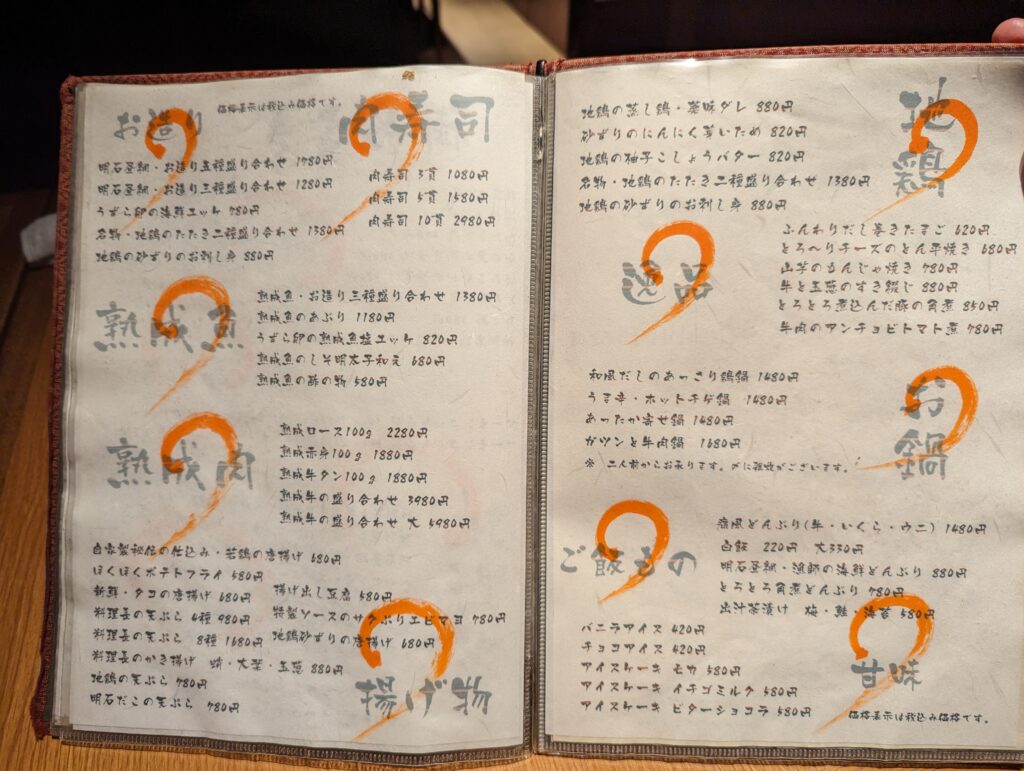 お造り
価格表示は税込み価格です。
明石昼網・お造り五種盛り合わせ 1780円
明石昼網・お造り三種盛り合わせ 1280円
うずら卵の海鮮ユッケ 780円
名物・地鶏のたたき二種盛り合わせ 1380円
地鶏の砂ずりのお刺し身 880円
肉寿司
肉寿司 3貫 1080円
肉寿司 5貫 1580円
肉寿司 10貫 2980円
熟成魚
熟成魚・お造り三種盛り合わせ 1380円
熟成魚のあぶり 1180円
うずら卵の熟成魚塩ユッケ 820円
熟成魚のしそ明太子和え 680円
熟成魚の酢の物 580円
熟成肉
熟成ロース100g 2280円
熟成赤身100g 1880円
熟成牛タン100g 1880円
熟成牛の盛り合わせ 3980円
熟成牛の盛り合わせ 大 5980円
自家製秘伝の仕込み・若鶏の唐揚げ 680円
ほくほくポテトフライ 580円
新鮮・タコの唐揚げ 680円
料理長の天ぷら 4種 980円
料理長の天ぷら 8種 1680円
料理長のかき揚げ 蛸・大葉・玉葱 880円
地鶏の天ぷら 780円
明石だこの天ぷら 780円
揚げ出し豆腐 580円
特製ソースのサクぷりエビマヨ 780円
地鶏砂ずりの唐揚げ 680円
揚げ物
地鶏
地鶏の蒸し鶏・薬味ダレ 880円
砂ずりのにんにく芽いため 820円
地鶏の柚子こしょうバター 820円
名物・地鶏のたたき二種盛り合わせ 1380円
地鶏の砂ずりのお刺し身 880円
逸品
ふんわりだし巻きたまご 620円
とろ〜りチーズのとん平焼き 680円
山芋のもんじゃ焼き 780円
牛と玉葱のすき綴じ 880円
とろとろ煮込んだ豚の角煮 850円
牛肉のアンチョビトマト煮 780円
お鍋
和風だしのあっさり鶏鍋 1480円
うま辛・ホットチゲ鍋 1480円
あったか寄せ鍋 1480円
ガツンと牛肉鍋 1680円
※ 二人前からお承ります。〆に雑炊がございます。
ご飯もの
痛風どんぶり(牛・いくら・ウニ) 1480円
白飯 220円 大330円
明石昼網・漁師の海鮮どんぶり 880円
とろとろ角煮どんぶり 780円
出汁茶漬け 梅・鮭・海苔 580円
バニラアイス 420円
チョコアイス 420円
アイスケーキ モカ 580円
アイスケーキ イチゴミルク 580円
アイスケーキ ビターショコラ 580円
甘味
価格表示は税込み価格です。